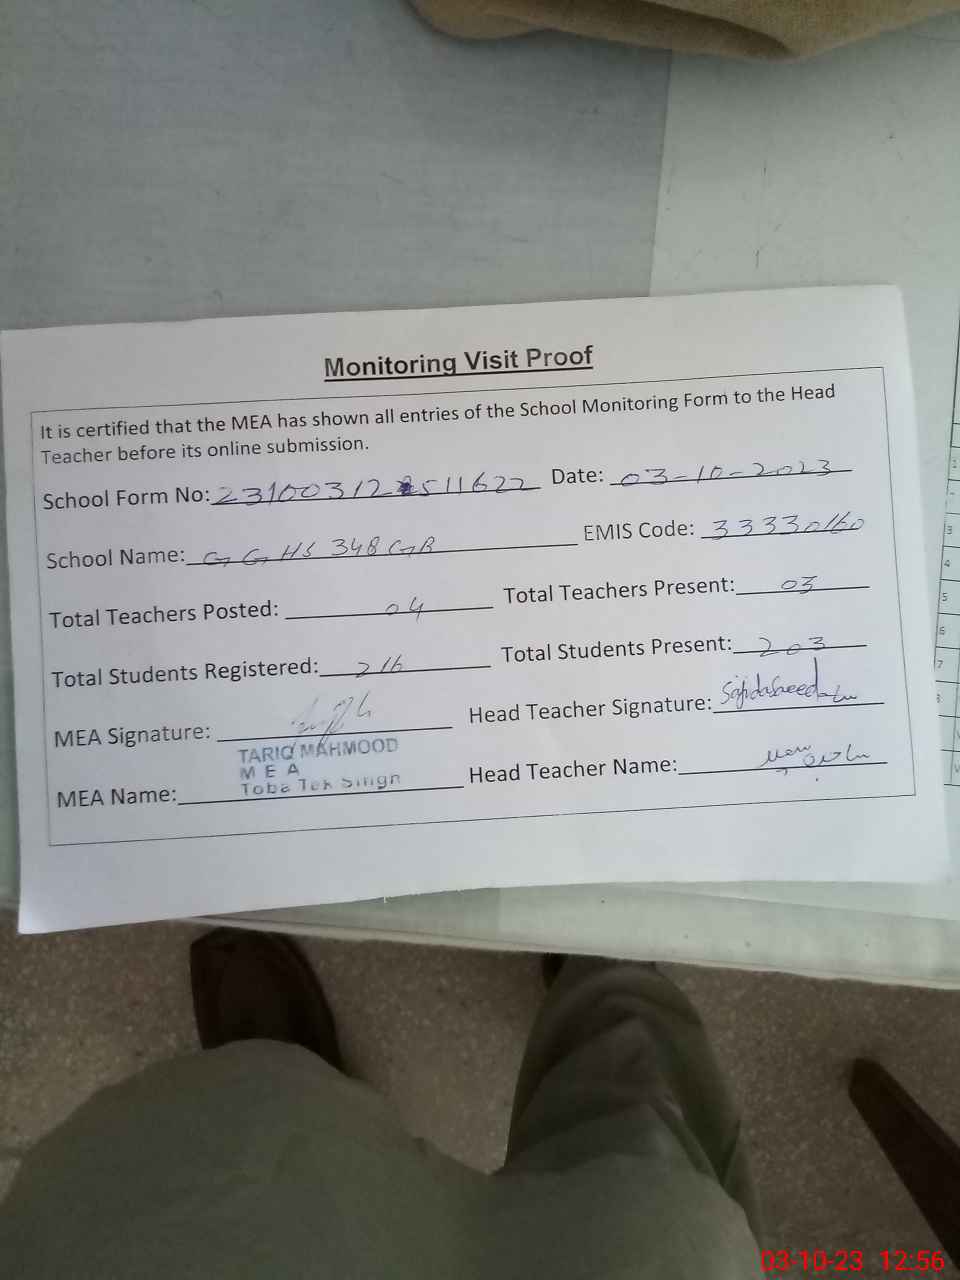 Monitoring Visit Proof
It is certified that the MEA has shown all entries of the School Monitoring Form to the Head
Teacher before its online submission.
School Form No: 231003122511622 Date: 03-10-2023
School Name: GGHS 348 GB EMIS Code: 33330160
Total Teachers Posted: 04 Total Teachers Present: 03
Total Students Registered: 216 Total Students Present: 203
MEA Signature: Head Teacher Signature: Sajida Saeed
TARIQ MAHMOOD
M E A
MEA Name: Toba Tek Singh Head Teacher Name:
03-10-23 12:56